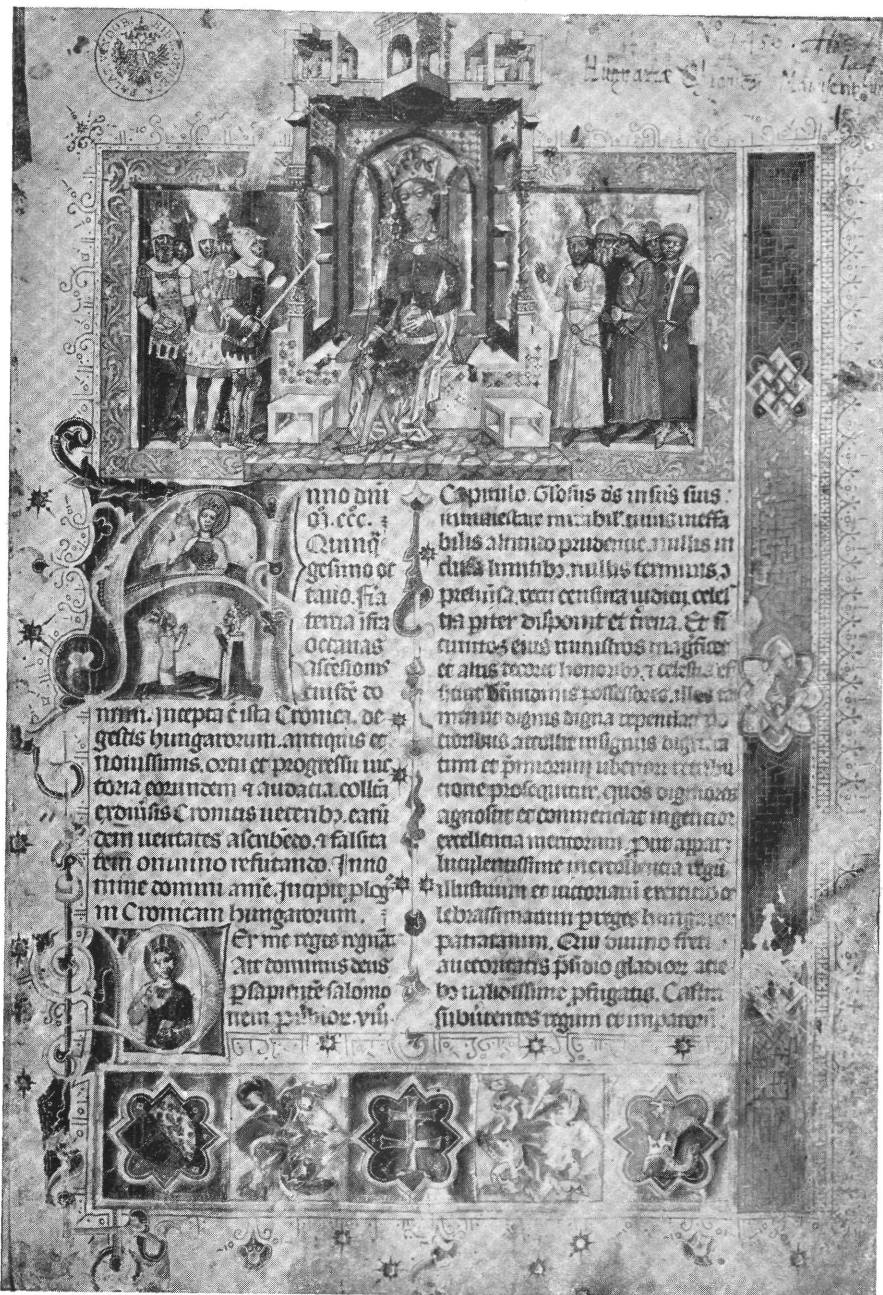 nno dni
M. ccc. ⁊
Quinq̄
gesimo oc
tauo. Fia
tertia ifra
octauas
Ascesionis
eiusdē do
mini. Incepta ē ista Cronica. de
gestis hungarorum. antiquis et
nouissimis. ortu et progressu. uic
toria eorundem ⁊ audacia. collcā
ex diūsis Cronicis ueteribȝ. earū
dem ueritates ascribēdo. ⁊ falsita
tem omnino refutando. In no
mine domini amē. Incipit plog
in Cronicam hungarorum.
Per me reges regnāt
Ait dominus deus
p̱ sapientē salomo
nem
Capitulo. Glosus ds in scīs suis.
bilis altitudo prudentie. nullis in
clusa limitibȝ. nullis terminis ↄ
prehīsa. recti censura iudicij celes
tia piter disponit et terrena. Et si
cunctos eius ministros magficet
et altis decoret honoribȝ. ⁊ celestis ef
ficiat btitudinis possessores. illos ta
men ut dignis digna rependat
cioribus attollit insignijs dignita
tum et p̄miorum uberiori retribu
cione prosequitur. quos digniores
agnoscit et commendat ingencior
excellencia meritorum.
luculentissime
illustrium et uictoriarū
lebrassimarum p̱ reges hungaror
patratarum. Qui diuino freti
auctoritatis p̄sidio gladior acie
bȝ ualidissime p̱fligatis. Castra
subūtentes regum et impatorū